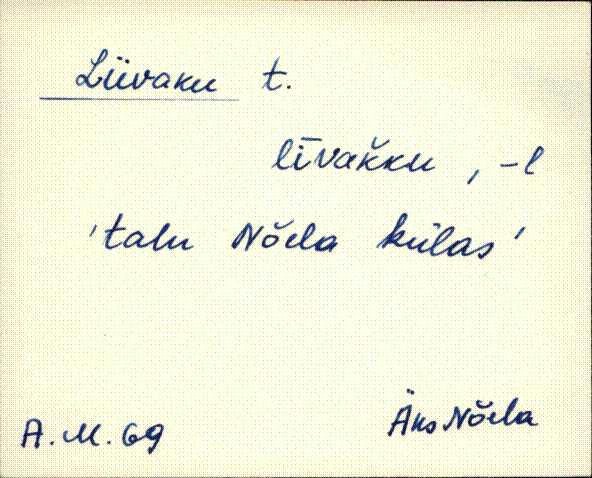 Liivaku t.
līvak̆ku, -l
'talu Nõela külas'
A. M. 69
Äks Nõela